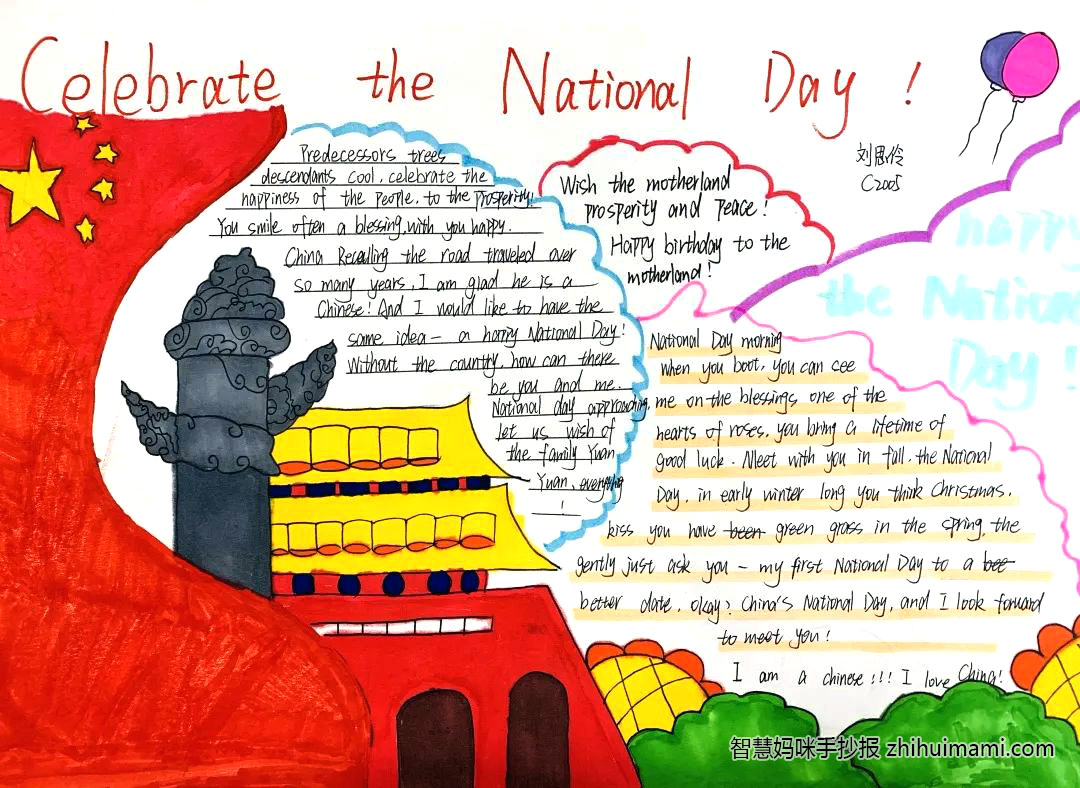 Celebrate the National Day !
刘思伶
C2005
Predecessors trees
descendants cool, celebrate the
happiness of the people, to the prosperity!
You smile often a blessing, with you happy.
China Recalling the road traveled over
so many years, I am glad he is a
Chinese! And I would like to have the
same idea — a happy National Day!
Without the country, how can there
be you and me.
National day approaching,
let us wish of
the family Yuan
Yuan, everything
!
Wish the motherland
prosperity and peace!
Happy birthday to the
motherland!
happy
the Nationa
Day !
National Day morning
when you boot, you can see
me on the blessings one of the
hearts of roses, you bring a lifetime of
good luck. Meet with you in full. the National
Day, in early winter long you think Christmas,
kiss you have been green grass in the spring, the
gently just ask you — my first National Day to a bee
better date, okay? China's National Day, and I look forward
to meet you!
I am a chinese!!! I love China!
智慧妈咪手抄报 zhihuimami.com